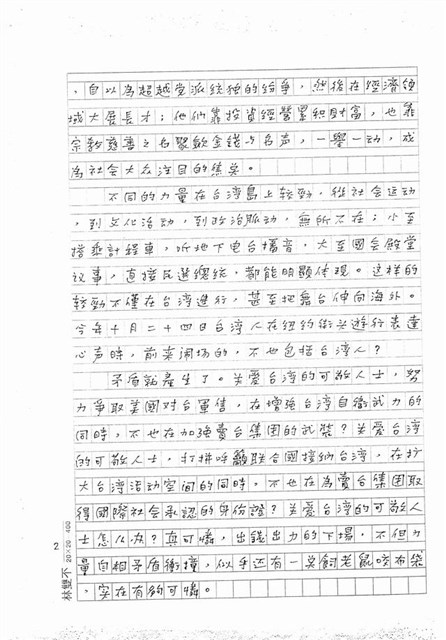 ，自以為超越党派統独的紛爭，然後在經濟領
域大展長才；他们靠投資經營累积財富，也靠
宗教慈善之名聚歛金錢与名声，一舉一动，成
為社会大众注目的焦点。
不同的力量在台湾島上較勁，從社会运动
，到文化活动，到政治脈动，無所不在；小至
搭乘計程車，听地下电台播音，大至國会殿堂
议事，直接民選總統，都能明顯体現。这樣的
較勁不僅在台湾進行，甚至把舞台伸向海外。
今年十月二十四日台湾人在紐約街头遊行表達
心声時，前來闹场的，不也包括台湾人？
矛盾就產生了。关爱台湾的可敬人士，努
力爭取美國对台軍售，在增強台湾自衛武力的
同時，不也在加強賣台集团的武裝？关爱台湾
的可敬人士，打拼呼籲联合國接納台湾，在扩
大台湾活动空间的同時，不也在為賣台集团取
得國際社会承認的身份證？关爱台湾的可敬人
士怎么办？真可憐，出錢出力的下場，不但力
量自相矛盾衝撞，似乎还有一点飼老鼠咬布袋
，实在有夠可憐。
2
林雙不 20×20 400